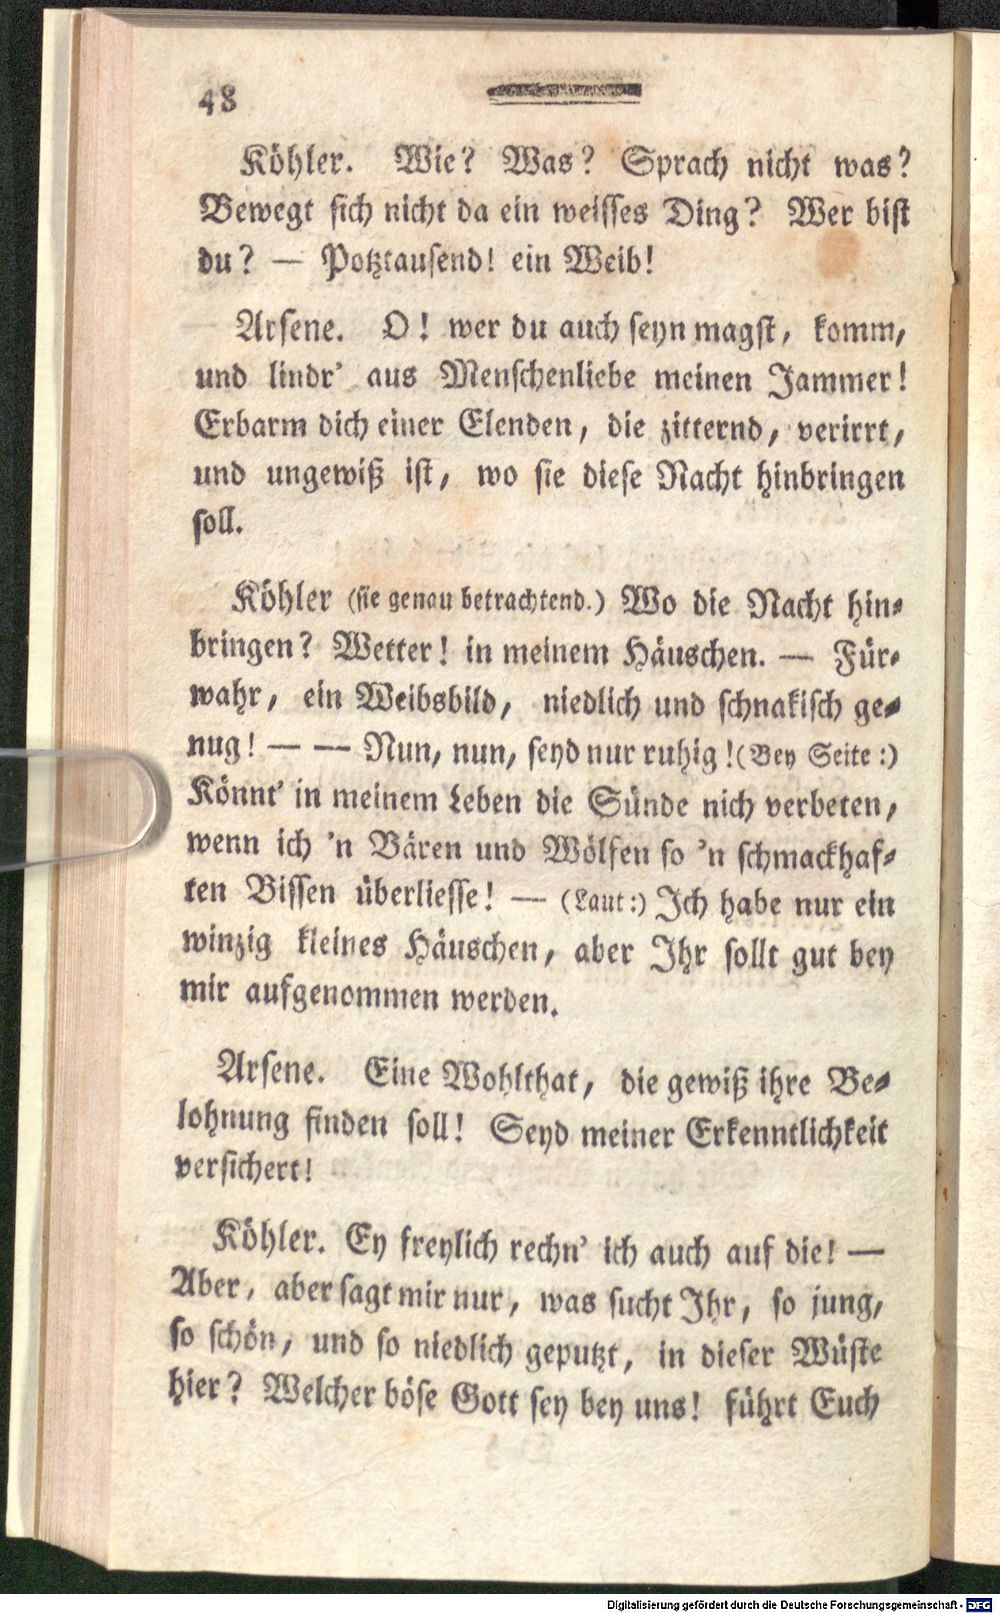 48
Köhler. Wie? Was? Sprach nicht was?
Bewegt sich nicht da ein weisses Ding? Wer bist
du? — Potztausend! ein Weib!
Arsene. O! wer du auch seyn magst, komm,
und lindr' aus Menschenliebe meinen Jammer!
Erbarm dich einer Elenden, die zitternd, verirrt,
und ungewiß ist, wo sie diese Nacht hinbringen
soll.
Köhler (sie genau betrachtend.) Wo die Nacht hin-
bringen? Wetter! in meinem Häuschen. — Für-
wahr, ein Weibsbild, niedlich und schnakisch ge-
nug! — — Nun, nun, seyd nur ruhig! (Bey Seite:)
Könnt' in meinem Leben die Sünde nich verbeten,
wenn ich 'n Bären und Wölfen so 'n schmackhaf-
ten Bissen überliesse! — (Laut:) Ich habe nur ein
winzig kleines Häuschen, aber Ihr sollt gut bey
mir aufgenommen werden.
Arsene. Eine Wohlthat, die gewiß ihre Be-
lohnung finden soll! Seyd meiner Erkenntlichkeit
versichert!
Köhler. Ey freylich rechn' ich auch auf die! —
Aber, aber sagt mir nur, was sucht Ihr, so jung,
so schön, und so niedlich geputzt, in dieser Wüste
hier? Welcher böse Gott sey bey uns! führt Euch
Digitalisierung gefördert durch die Deutsche Forschungsgemeinschaft - DFG